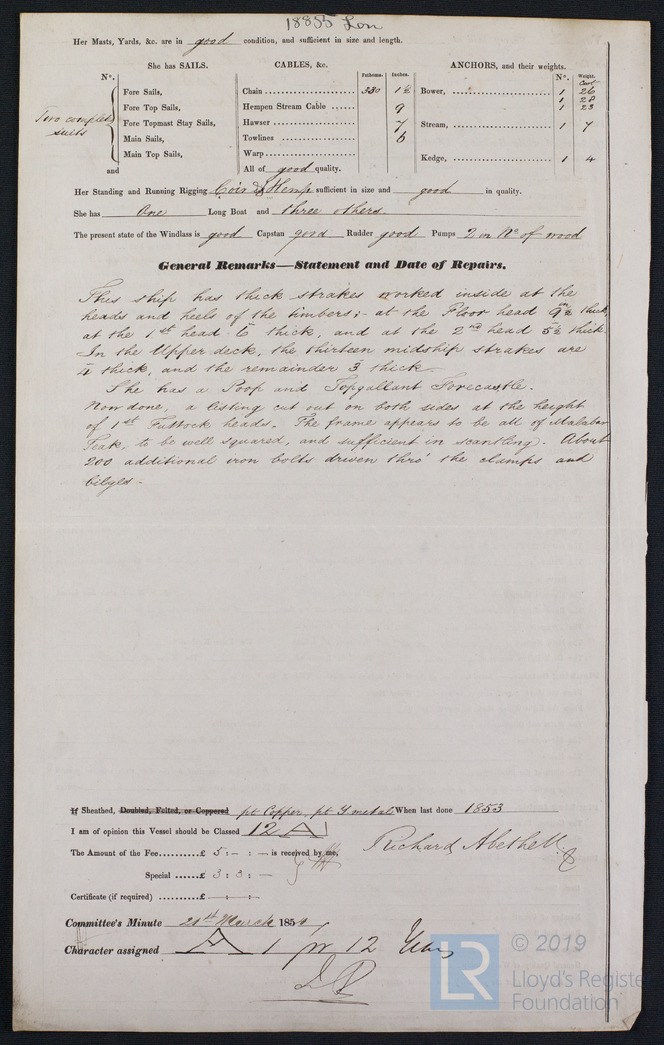 18855 Lon
Her Masts, Yards, &c. are in good condition, and sufficient in size and length.
She has SAILS.
Nº.
Two complete suits
Fore Sails,
Fore Top Sails,
Fore Topmast Stay Sails,
Main Sails,
Main Top Sails,
and
CABLES, &c.
Fathoms. Inches.
Chain 330 1½
Hempen Stream Cable 9
Hawser 7
Towlines 6
Warp
All of good quality.
ANCHORS, and their weights.
Nº. Weight. Cwt
Bower, 1 26
1 28
1 23
Stream, 1 7
Kedge, 1 4
Her Standing and Running Rigging Coir & Hemp sufficient in size and good in quality.
She has One Long Boat and three others.
The present state of the Windlass is good Capstan good Rudder good Pumps 2 in Nº of wood
General Remarks—Statement and Date of Repairs.
This ship has thick strakes worked inside at the
heads and heels of the timbers;- at the Floor head 9½ in thick,
at the 1st head 6 thick, and at the 2nd head 5½ thick.
In the Upper deck, the thirteen midship strakes are
4 thick, and the remainder 3 thick.-
She has a Poop and Topgallant Forecastle.
Now done, a listing cut out on both sides at the height
of 1st Futtock heads. The frame appears to be all of Malabar
Teak, to be well squared, and sufficient in scantling. About
200 additional iron bolts driven thro' the clamps and
bilges-
If Sheathed, Doubled, Felted, or Coppered pt Copper, pt Y metal When last done 1853
I am of opinion this Vessel should be Classed 12 A
The Amount of the Fee.........£ 5 : - : - is received by me,
Richard Abethell
Special ......£ 3 : 3 : -
Certificate (if required) .........£ - : - : -
Committee's Minute 21st March 1854
Character assigned A 1 for 12 Years
© 2019
LR
Lloyd's Register
Foundation